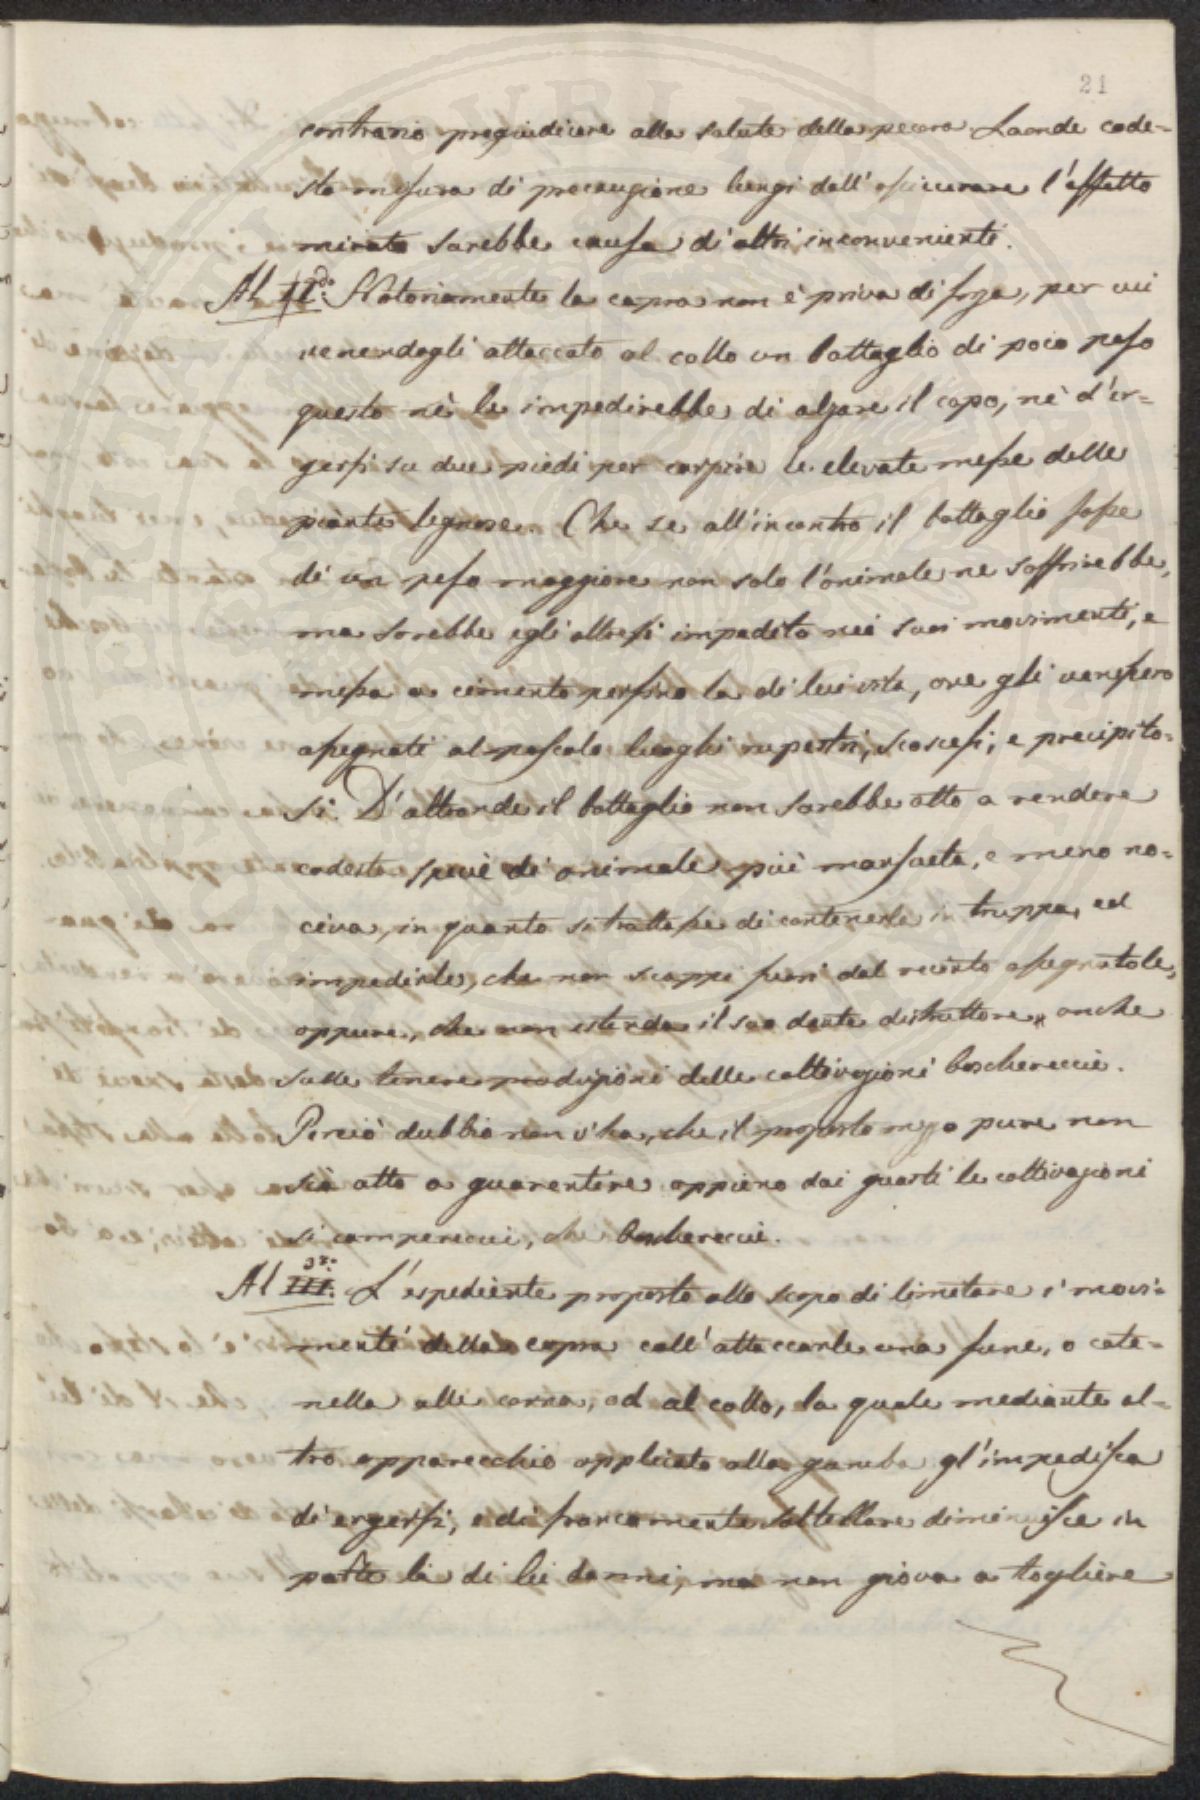 21
contrario pregiudicare alla salute della pecora. Laonde code-
sta misura di precauzione lungi dall'assicurare l'effetto
mirato sarebbe causa di altri inconvenienti.
Al II.do Notoriamente la capra non è priva di forza, per cui
venendogli attaccato al collo un battaglio di poco peso
questo nè le impedirebbe di alzare il capo, nè d'er-
gersi su due piedi per carpire le elevate messe delle
piante legnose. Che se all'incontro il battaglio fosse
di un peso maggiore non solo l'animale ne soffrirebbe,
ma sarebbe egli altresì impedito nei suoi movimenti, e
messa a cimento persino la di lui vita, ove gli venissero
assegnati al pascolo luoghi rupestri, scoscesi, e precipito-
si. D'altronde il battaglio non sarebbe atto a rendere
codesta specie di animale più mansueta, e meno no-
civa, in quanto si trattasse di contenerla in truppa, ed
impedirle, che non scappi fuori dal recinto assegnatole,
oppure, che non estenda il suo dente distruttore anche
sulle tenere produzioni delle coltivazioni boschereccie.
Perciò dubbio non v'ha, che il proposto mezzo pure non
sia atto a guarentire appieno dai guasti le coltivazioni
si camperecci, che boschereccie.
Al III.zo: L'espediente proposto allo scopo di limitare i movi-
menti della capra coll'attaccarle una fune, o cate-
nella alle corna, od al collo, la quale mediante al-
tro apparecchio applicato alla gamba gl'impedisca
di ergersi, e di francamente saltellare diminuisce in
parte li di lei danni, ma non giova a togliere